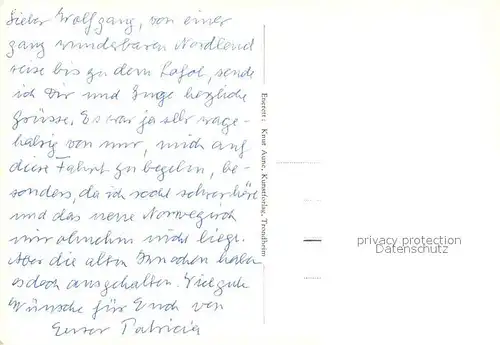 Lieber Wolfgang, von einer
ganz wunderbaren Nordland
reise bis zu dem Lofot, sende
ich Dir und Inge herzliche
Grüsse. Es war ja sehr wage-
halsig von mir, mich auf
diese Fahrt zu begeben, be-
sonders, da ich recht schwer höre
und das neue Norwegisch
mir ohnehin nicht liegt.
Aber die alten Knochen haben
es doch ausgehalten. Viel gute
Wünsche für Euch von
Eurer Patricia
Enerett: Knut Aune, Kunstforlag, Trondheim
privacy protection
Datenschutz